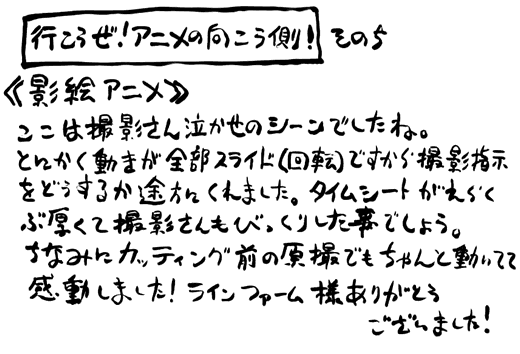 行こうぜ!アニメの向こう側! その5
《影絵アニメ》
ここは撮影さん泣かせのシーンでしたね。
とにかく動きが全部スライド(回転)ですから撮影指示
をどうするか途方にくれました。タイムシートがえらく
ぶ厚くて撮影さんもびっくりした事でしょう。
ちなみにカッティング前の原撮でもちゃんと動いてて
感動しました!ラインファーム様ありがとう
ございました!